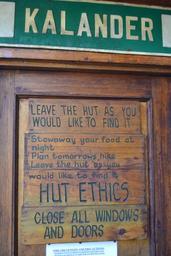 KALANDER
LEAVE THE HUT AS YOU
WOULD LIKE TO FIND IT
Stowaway your food at
night
Plan tomorrows hike
Leave the hut as you
would like to find it
HUT ETHICS
CLOSE ALL WINDOWS
AND DOORS